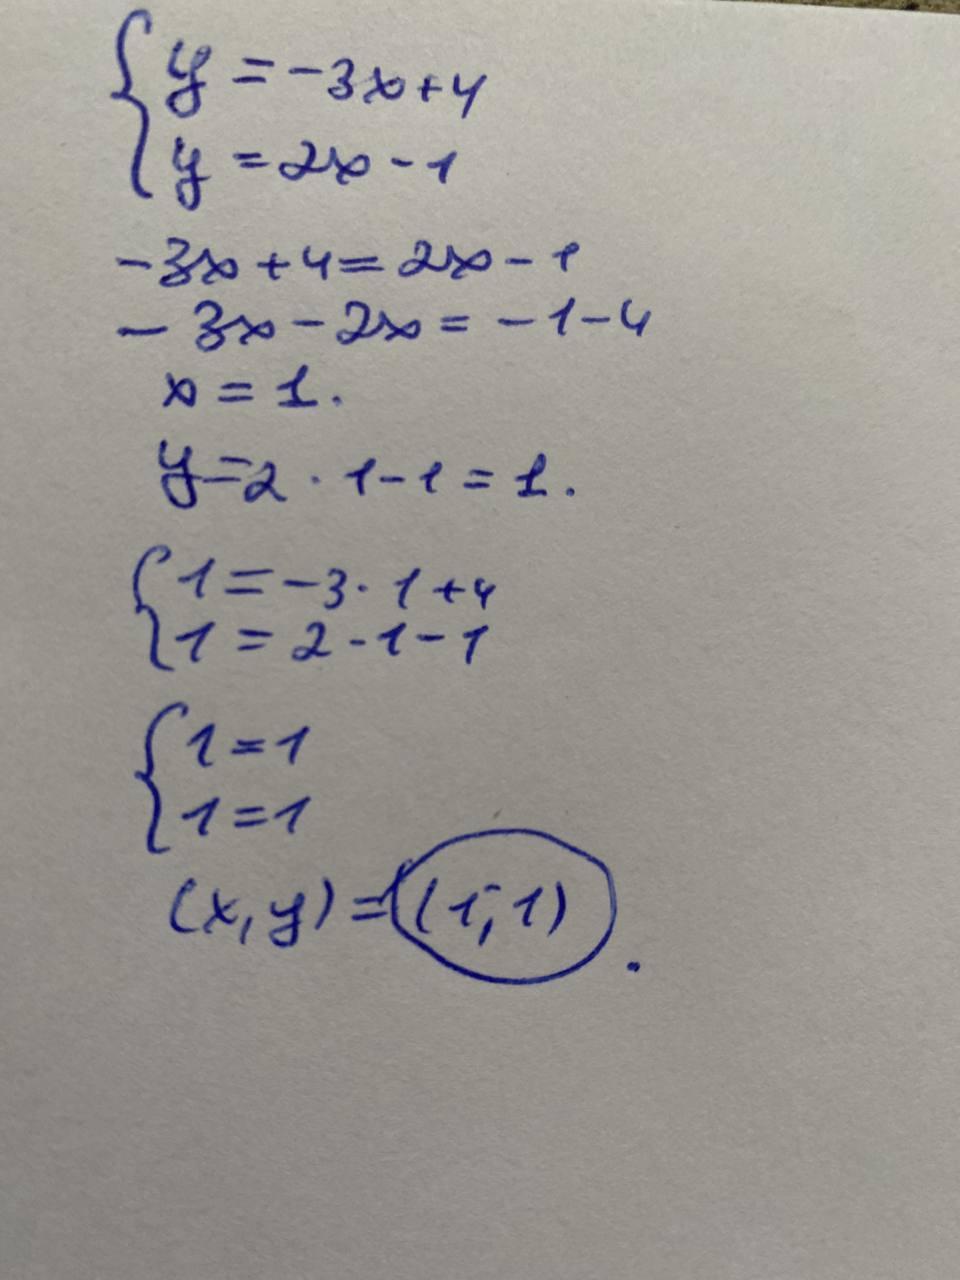 { y = -3x+4
y = 2x - 1
-3x+4= 2x-1
- 3x-2x = -1-4
x = 1.
y=2 · 1-1 = 1.
{ 1 = -3 · 1 +4
1 = 2 · 1 - 1
{ 1 = 1
1 = 1
(x, y) = (1; 1).